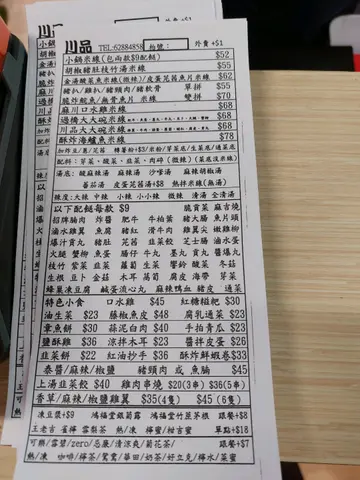 川品 TEL:62884858 枱號: 外賣 +$1
小鍋米線(包兩款$9配餸) $52
胡椒豬肚枝竹湯米線 $55
金湯酸菜魚片米線(微辣)/皮蛋芫茜魚片米線 $62
豬扒/雞扒/豬頸肉/豬軟骨 單拼 $55
脆炸鯇魚/無骨魚片 米線 雙拼 $70
麻川口水雞米線 $68
過橋大大碗米線 $68
川品大大碗米線 $68
酥炸海鱸魚米線 $78
配料:芽菜、酸菜、韮菜、肉碎(微辣)
湯底: 酸辣湯 麻辣湯 沙嗲湯 麻辣胡椒湯
蕃茄湯 皮蛋芫茜湯+$8 熱拌米線(無湯)
辣度:大辣 中辣 小辣 小小辣 微辣 清湯 全清湯
以下配餸每款 $9 脆賓菜 麻吉燒
招牌腩肉 炸醬 肥牛 牛柏葉 豬大腸 魚片頭
滷水雞翼 魚腐 豬紅 滑牛肉 雞翼尖 嫩雞柳
爆汁貢丸 豬肚 芫茜 韮菜餃 芝士腸 滷水蛋
火腿 蟹柳 魚蛋 腸仔 牛丸 墨丸 貢丸 醬爆丸
枝竹 紫菜 韮菜 蘿蔔 生菜 響鈴 酸菜 冬菇
生根 豆卜 金菇 木耳 萵筍 腐皮 海帶 芽菜
蜂巢凍豆腐 鹹蛋流心丸 麻辣鴨血 豬皮 通菜
特色小食 口水雞 $45 紅糖糍粑 $30
油生菜 $23 藤椒魚皮 $48 腐乳通菜 $23
章魚餅 $30 蒜泥白肉 $40 手拍青瓜 $23
鹽酥雞 $36 涼拌木耳 $23 醬拌皮蛋 $26
韮菜餅 $22 紅油抄手 $36 酥炸鮮蝦卷 $33
泰醬/麻辣/椒鹽 豬頸肉 或 魚腩 $45
上湯韮菜餃 $40 雞肉串燒 $20(3串) $36(6串)
香草/麻辣/椒鹽雞翼 $35(4隻) $45 (6隻)
凍豆漿+$9 鴻福堂銀菊露 鴻福堂竹蔗茅根 跟餐+$8
王老吉 雀檸 雪梨茶 熱/凍 檸蜜/柑吉蜜 單點+$18
可樂/雪碧/zero/忌廉/清涼爽/菊花茶/ 跟餐+$7
熱/凍 咖啡/檸茶/鴛鴦/華田/奶茶/好立克/檸水/菜蜜